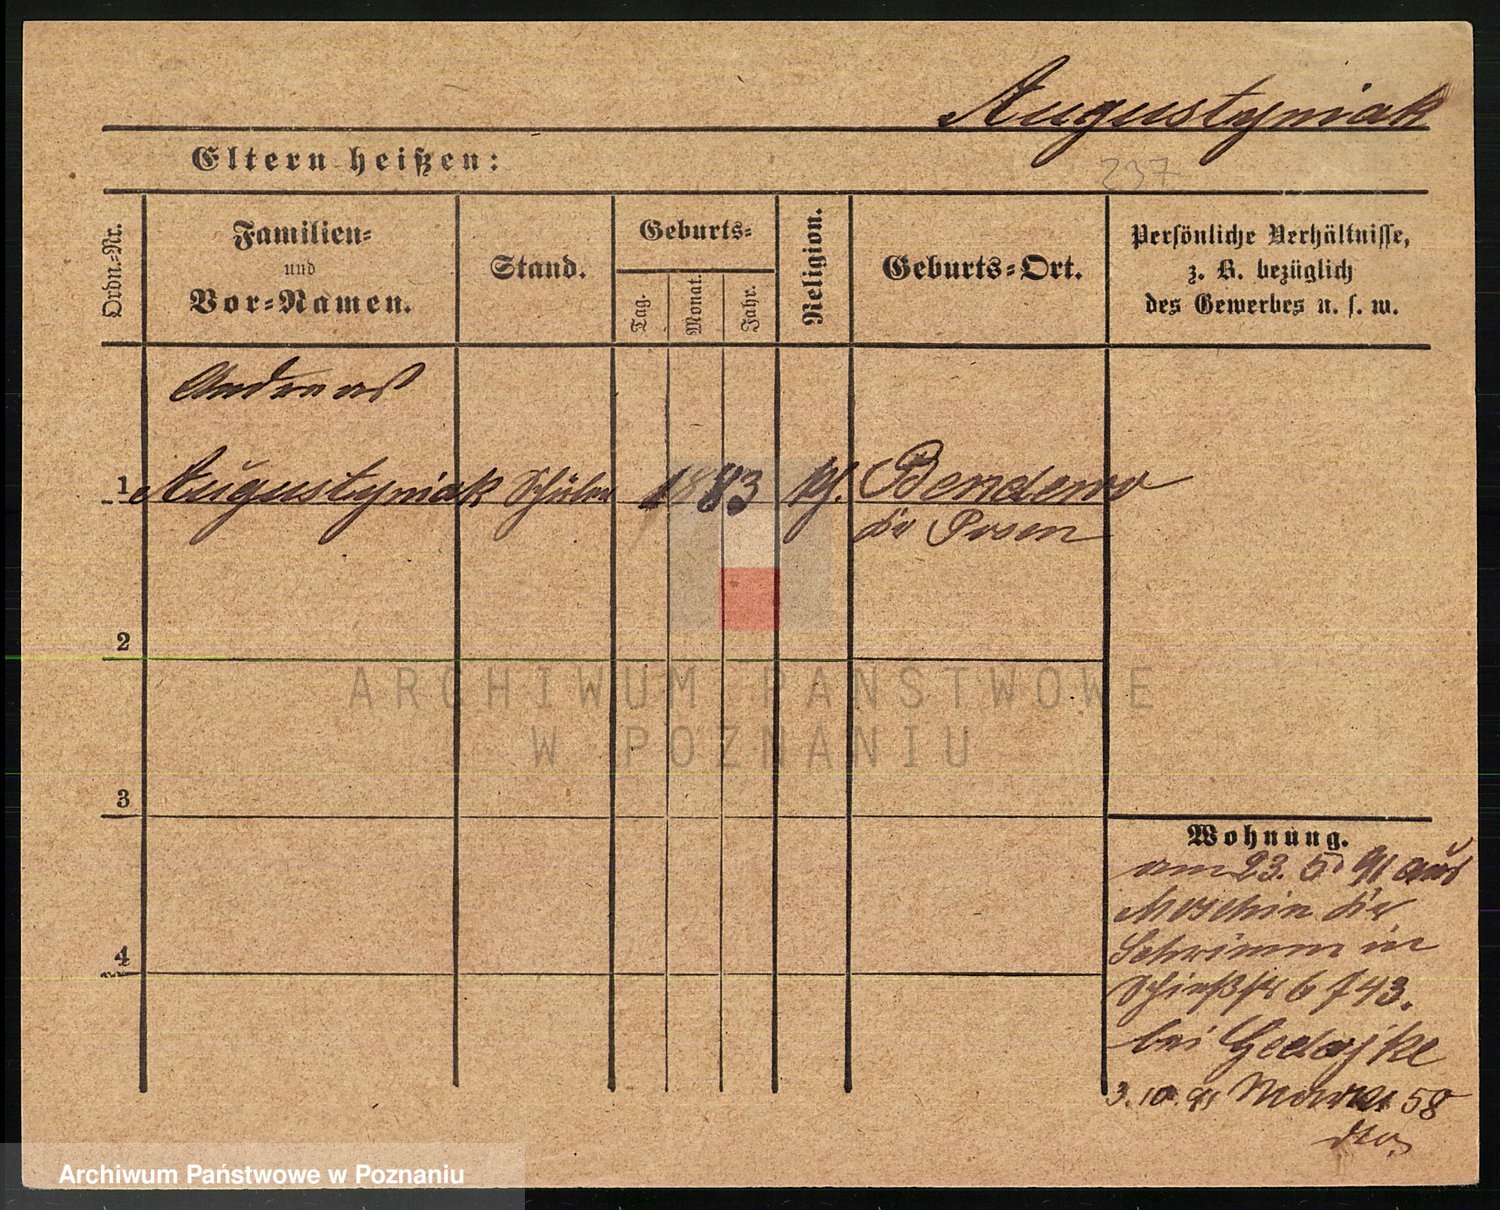 Augustyniak
Eltern heißen:
237
Ordn.-Nr.
Familien-
und
Vor-Namen.
Stand.
Geburts-
Tag.
Monat.
Jahr.
Religion.
Geburts-Ort.
Persönliche Verhältnisse,
z. B. bezüglich
des Gewerbes u. s. w.
Andreas
1 Augustyniak Schüler 1883 kth. Bendlewo
Kr Posen
2
ARCHIWUM PAŃSTWOWE
W POZNANIU
3
Wohnung.
am 23. 5 91 aus
Moschin Kr
Schrimm in
Schießstr 6
bei
4
3. 10. 91 58
dto.
Archiwum Państwowe w Poznaniu